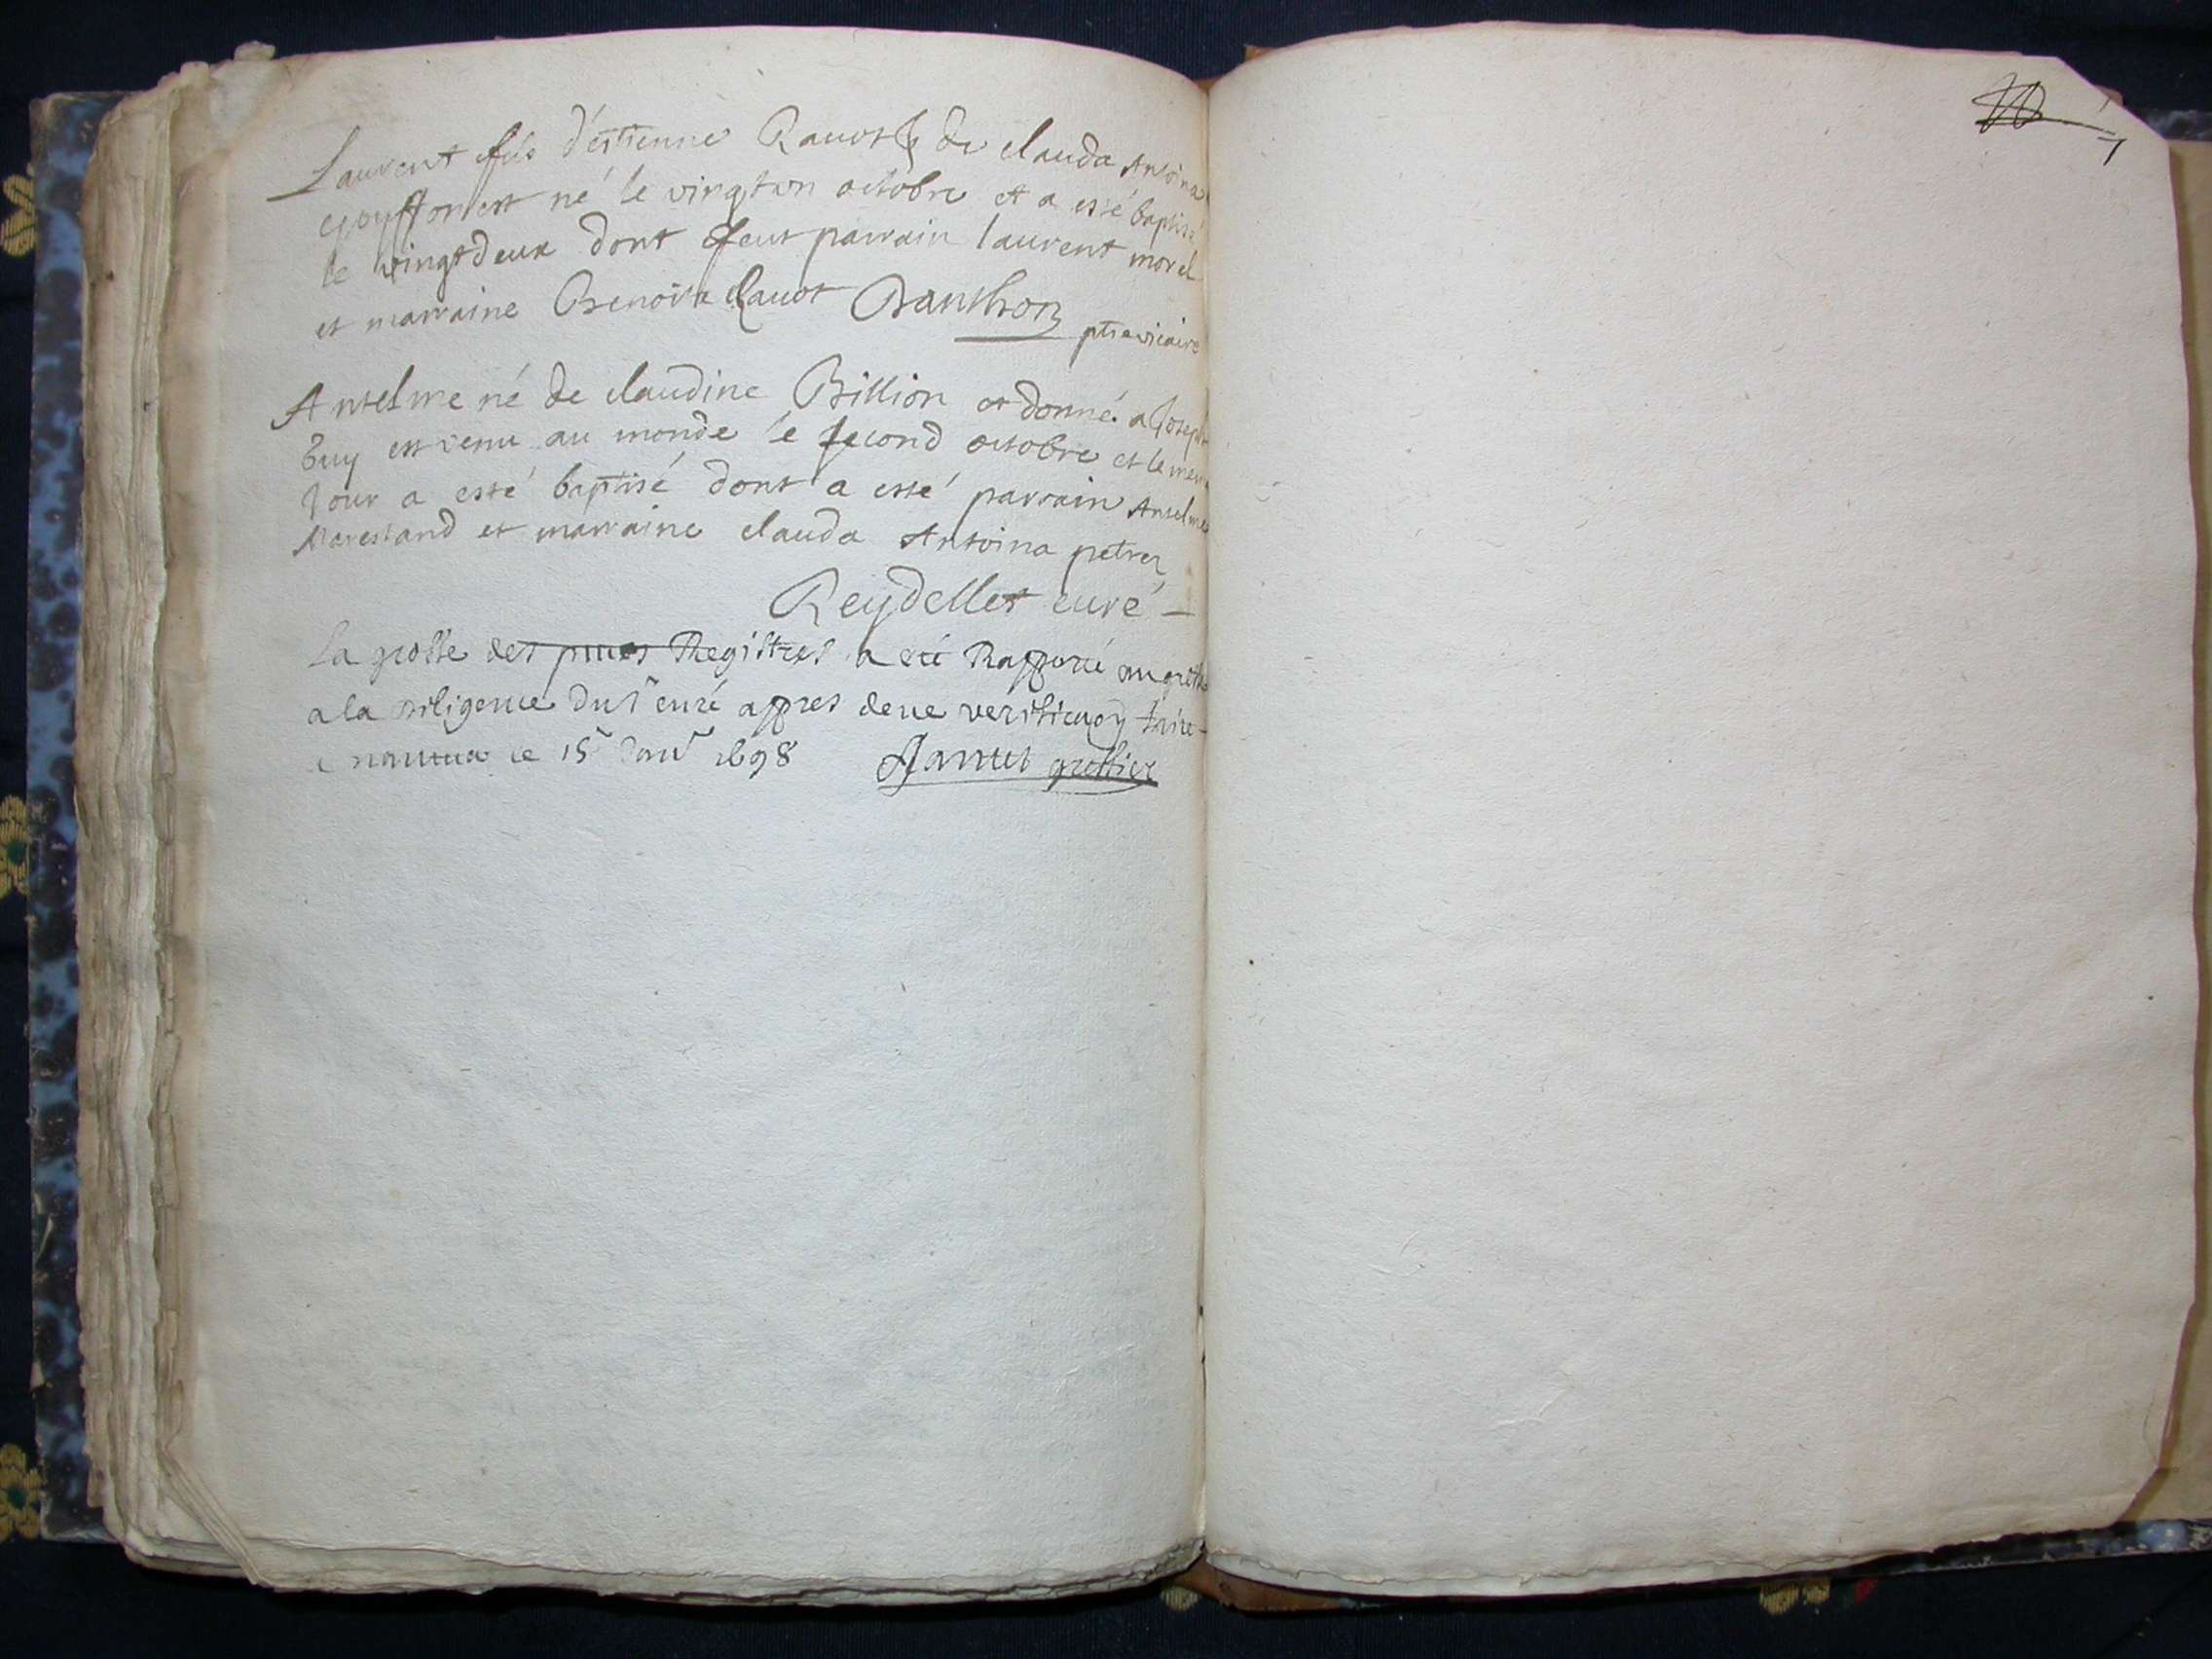 Laurent fils d'éstienne Rauot & de clauda Antoina
goyffon est né le vingt un octobre et a esté baptisé
le vingt deux dont feut parrain laurent morel
et marraine Benoite Rauot Banthon ptre vicaire
Antelme né de claudine Billion et donné a Joseph
buy est venu au monde le second octobre et le mem
Jour a esté baptisé dont a esté parrain Antelme
Marestand et marraine clauda Antoina
Reydellet curé
La grosse des Registres a été Rapporté au greffe
a la diligence du Sr curé appres deue veriffica͠on faite
nantua le 15 Janv 1698 greffier